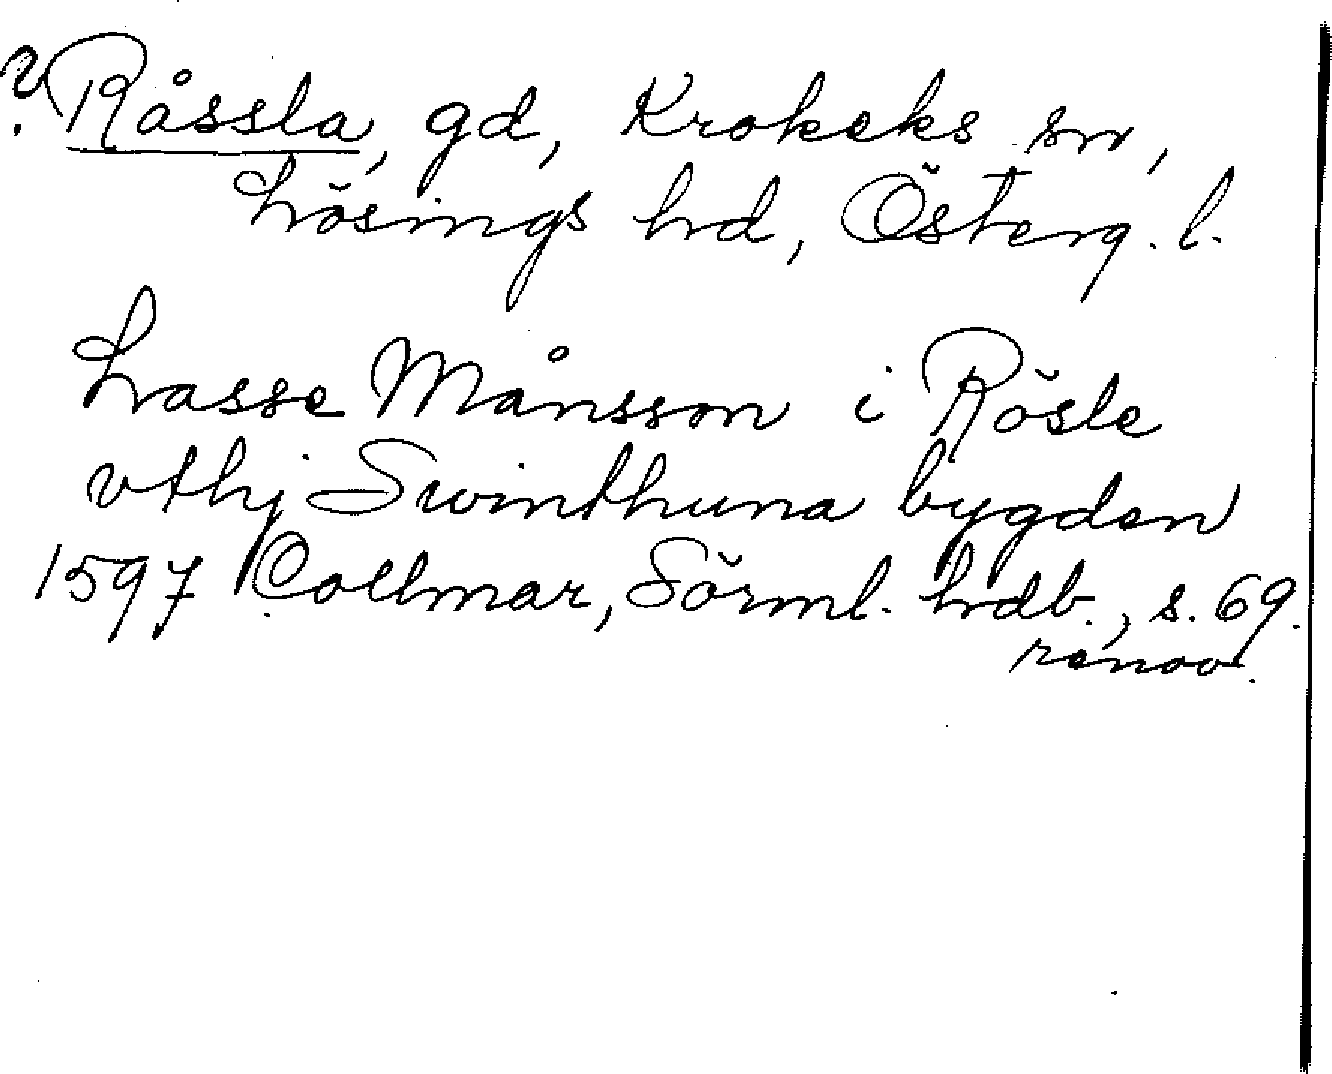 ? Råssla, gd, Krokeks sn,
Lösings hd, Österg. l.
Lasse Månsson i Rösle
vthj Swinthuna bygden
1597 Collmar, Sörml. hdb., s. 69.
renov.